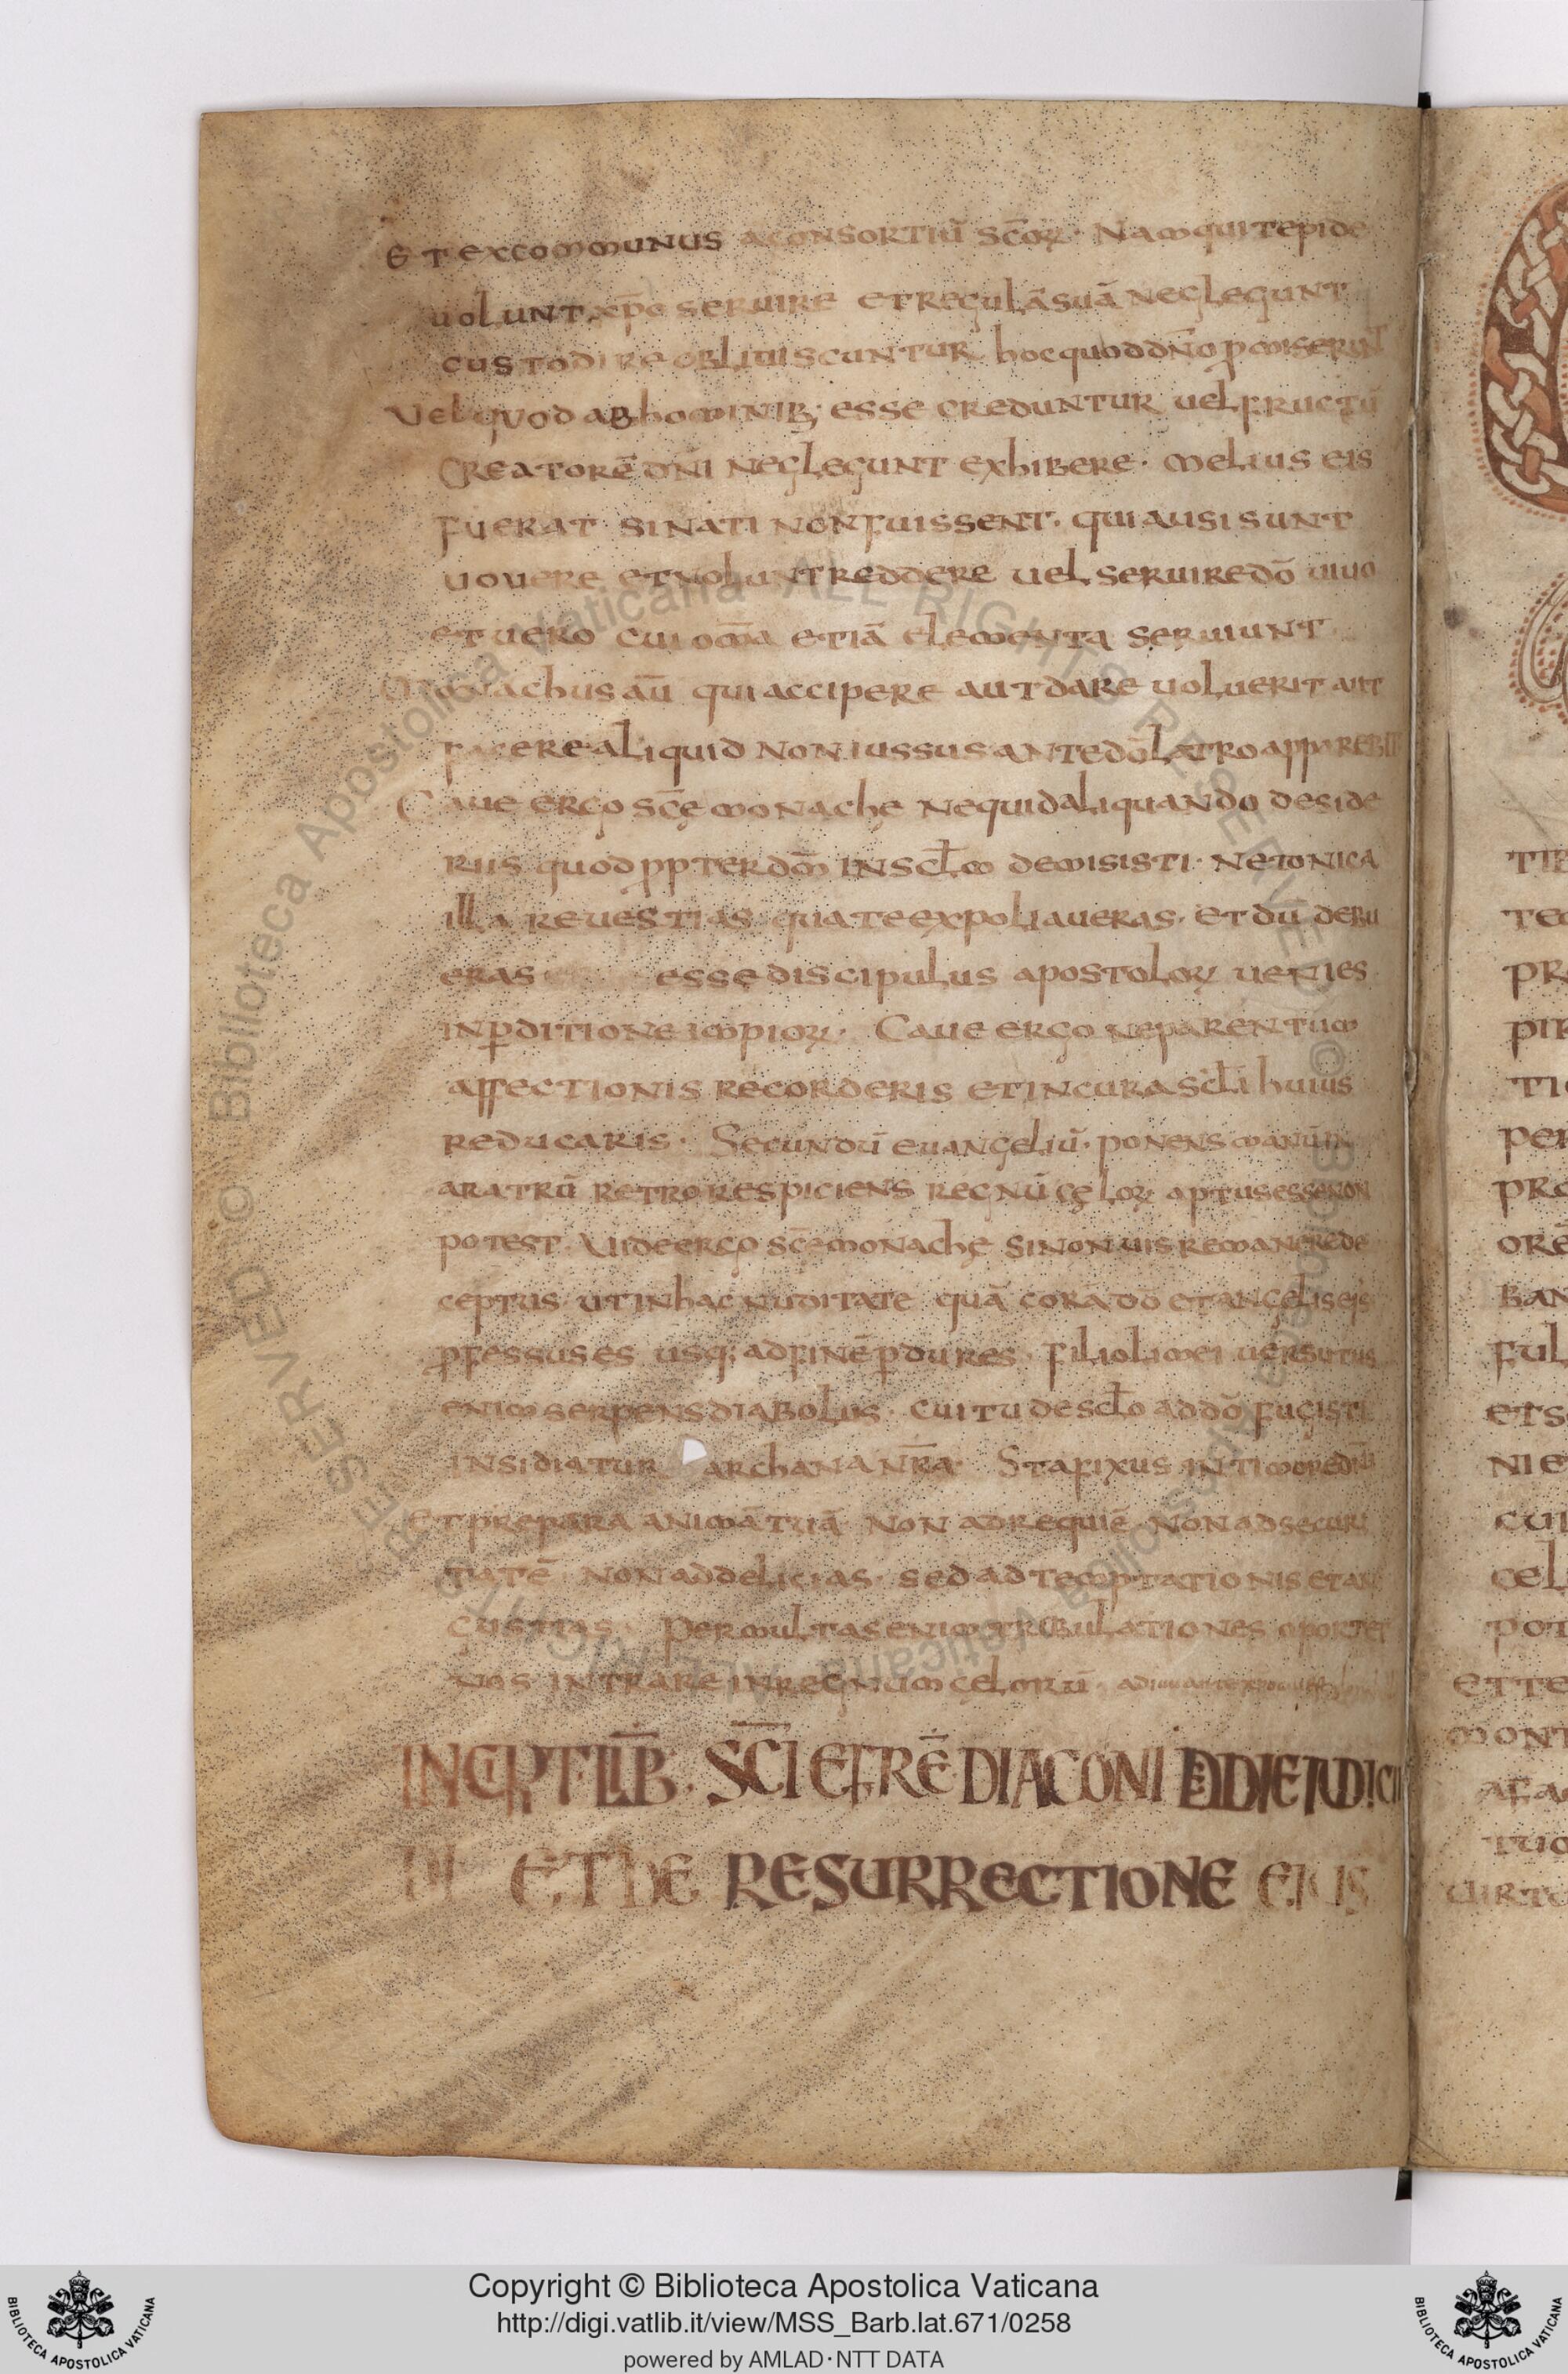 Et excommunus aconsortiū sc̄oꝝ · Nam qui tepide
uolunt xp̄o seruire et regulā suā neglegunt
custodire obliuiscuntur hoc quod dn̄o ꝓmiserunt
Vel quod ab hominib; esse creduntur uel fructū
Creatorē dn̄i neglegunt exhibere · melius eis
fuerat si nati non fuissent · qui ausi sunt
uouere et nolunt reddere uel seruire dō uiuo
et uero cui om̄a etiā elementa seruiunt
Monachus aū qui accipere aut dare uoluerit aut
facere aliquid non iussus ante dō latro apparebit
Caue ergo sc̄ę monachę nequid aliquando deside
riis quod ꝓpter dm̄ in scl̄m demisisti · ne tonica
illa reuestias qua te expoliaueras · et dū debu
eras esse discipulus apostoloꝝ uenies
in ꝑditione impioꝝ · Caue ergo ne parentum
affectionis recorderis et in curas scl̄i huius
reducaris · Secundū euangeliū · ponens manū in
aratrū retro respiciens regnū cęloꝝ aptus esse non
potest · Vide ergo sc̄e monachę si non uis remanere de
ceptus · ut in hac nuditate quā corā dō et angelis eis
ꝓfessus es usq; ad finē ꝑdures · filioli mei uersutus
enim serpens diabolus · cui tu de scl̄o ad dō fugisti
insidiatur archana nr̄a · Sta fixus in timore dn̄i
Et prepara animā tuā non ad requiē non ad securi
tatē non ad delicias · sed ad temptationis et an
gustias · Per multas enim tribulationes oportet
nos intrare in regnum cęlorū · adiuuante
INCIPIT LIB̄ · SC̄I EFRĒ DIACONI DE DIE IUDICII
DI ET DE RESURRECTIONE EIUS
TE
PR
PIR
PER
PRO
ORĒ
BAN
FUL
ETS
NIE
CUI
CEL
POT
ETTE
MONT
Copyright © Biblioteca Apostolica Vaticana
http://digi.vatlib.it/view/MSS_Barb.lat.671/0258
powered by AMLAD·NTT DATA
BIBLIOTECA APOSTOLICA VATICANA
BIBLIOTECA APOSTOLICA VATICANA
© Biblioteca Apostolica Vaticana ALL RIGHTS RESERVED
© Biblioteca Apostolica Vaticana ALL RIGHTS RESERVED